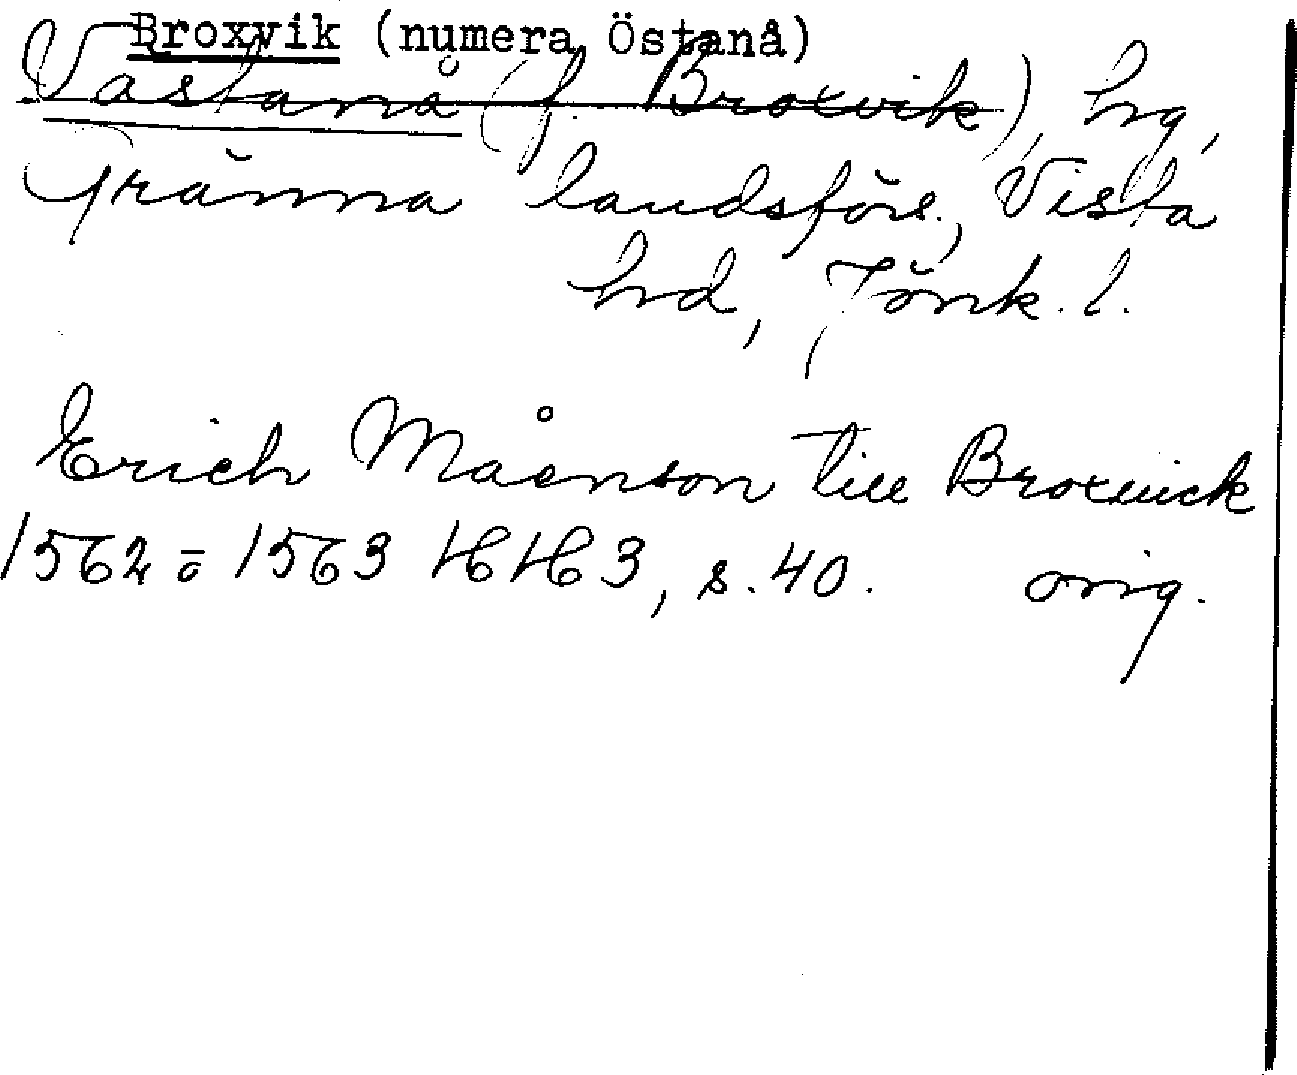 Broxvik (numera Östanå)
Västanå (f. Broxvik), hg,
Gränna landsförs., Vista
hd, Jönk. l.
Erich Månsson till Broxuick
1562 ö 1563 HH 3, s. 40. orig.